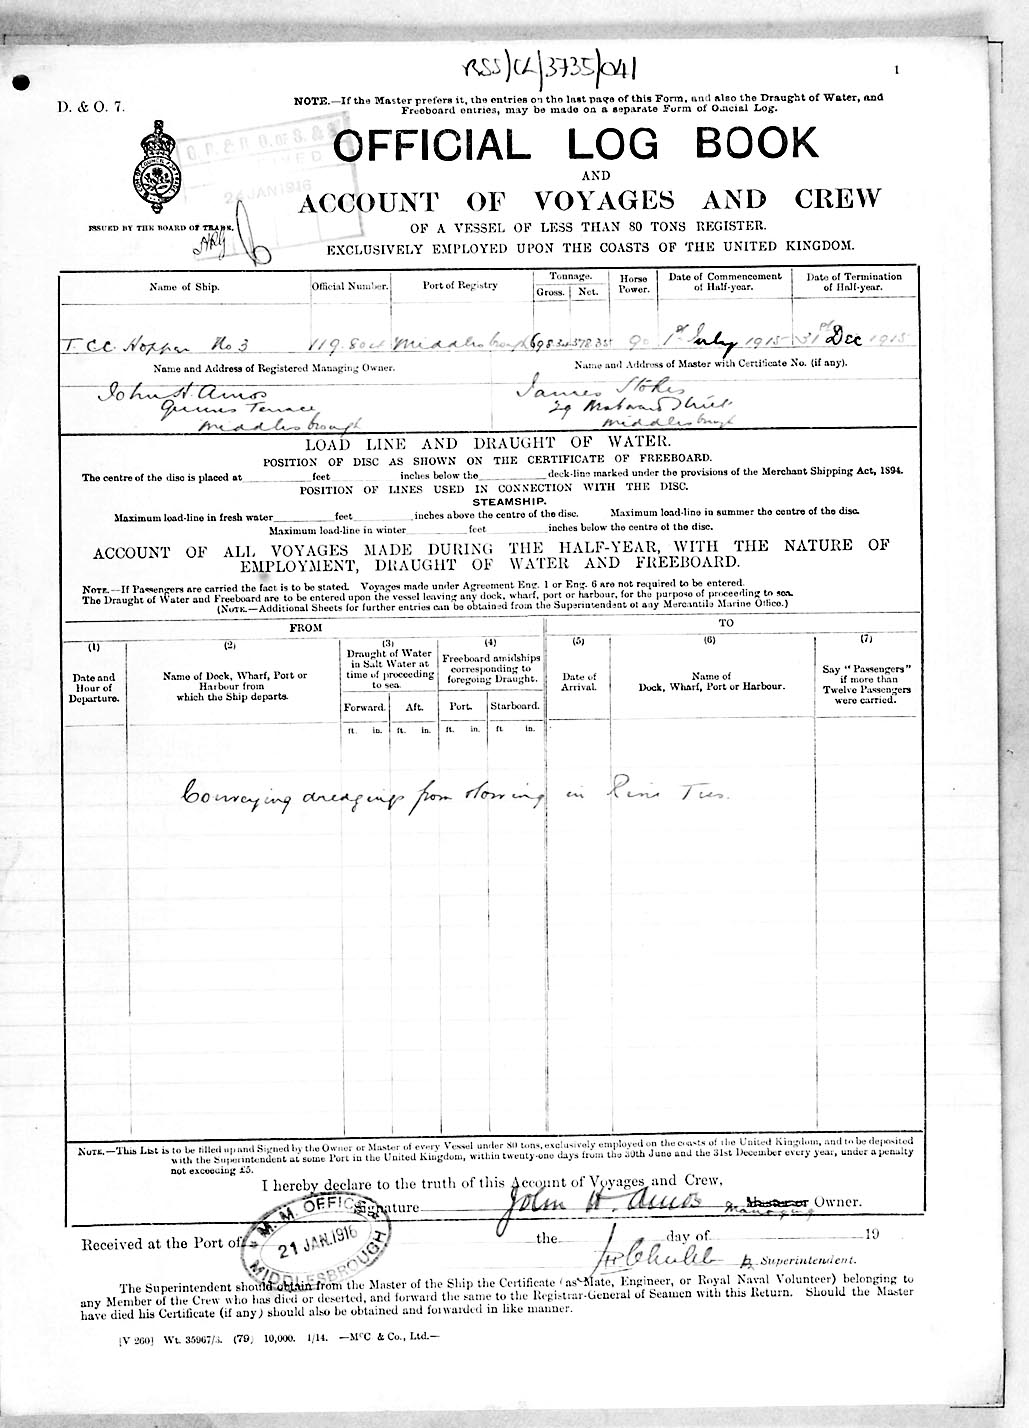 RSS/CL/3735/041
1
D. & O. 7.
NOTE.—If the Master prefers it, the entries on the last page of this Form, and also the Draught of Water, and
Freeboard entries, may be made on a separate Form of Official Log.
OFFICIAL LOG BOOK
AND
ACCOUNT OF VOYAGES AND CREW
OF A VESSEL OF LESS THAN 80 TONS REGISTER.
EXCLUSIVELY EMPLOYED UPON THE COASTS OF THE UNITED KINGDOM.
ISSUED BY THE BOARD OF TRADE.
JAN 1916
Name of Ship. Official Number. Port of Registry Tonnage. Gross. Net. Horse Power. Date of Commencement of Half-year. Date of Termination of Half-year.
T.C.C. Hopper No 3 Middlesbrough 90 1st July 1915 31st Dec 1915
Name and Address of Registered Managing Owner. Name and Address of Master with Certificate No. (if any).
John H. Amos James Stokes
Terrace 29 Street
Middlesbrough Middlesbrough
LOAD LINE AND DRAUGHT OF WATER.
POSITION OF DISC AS SHOWN ON THE CERTIFICATE OF FREEBOARD.
The centre of the disc is placed at feet inches below the deck-line marked under the provisions of the Merchant Shipping Act, 1894.
POSITION OF LINES USED IN CONNECTION WITH THE DISC.
STEAMSHIP.
Maximum load-line in fresh water feet inches above the centre of the disc. Maximum load-line in summer the centre of the disc.
Maximum load-line in winter feet inches below the centre of the disc.
ACCOUNT OF ALL VOYAGES MADE DURING THE HALF-YEAR, WITH THE NATURE OF
EMPLOYMENT, DRAUGHT OF WATER AND FREEBOARD.
NOTE.—If Passengers are carried the fact is to be stated. Voyages made under Agreement Eng. 1 or Eng. 6 are not required to be entered.
The Draught of Water and Freeboard are to be entered upon the vessel leaving any dock, wharf, port or harbour, for the purpose of proceeding to sea.
(NOTE.—Additional Sheets for further entries can be obtained from the Superintendent of any Mercantile Marine Office.)
FROM TO
(1) (2) (3) (4) (5) (6) (7)
Date and Hour of Departure.
Name of Dock, Wharf, Port or Harbour from which the Ship departs.
Draught of Water in Salt Water at time of proceeding to sea.
Forward. Aft.
Freeboard amidships corresponding to foregoing Draught.
Port. Starboard.
Date of Arrival.
Name of Dock, Wharf, Port or Harbour.
Say "Passengers" if more than Twelve Passengers were carried.
ft. in. ft. in. ft. in. ft. in.
Conveying dredgings from in River Tees.
NOTE.—This List is to be filled up and Signed by the Owner or Master of every Vessel under 80 tons, exclusively employed on the coasts of the United Kingdom, and to be deposited
with the Superintendent at some Port in the United Kingdom, within twenty-one days from the 30th June and the 31st December every year, under a penalty
not exceeding £5.
I hereby declare to the truth of this Account of Voyages and Crew,
Signature John H. Amos Master or Managing Owner.
M. M. OFFICE
21 JAN. 1916
MIDDLESBROUGH
Received at the Port of the day of 19
Superintendent.
The Superintendent should obtain from the Master of the Ship the Certificate (as Mate, Engineer, or Royal Naval Volunteer) belonging to
any Member of the Crew who has died or deserted, and forward the same to the Registrar-General of Seamen with this Return. Should the Master
have died his Certificate (if any) should also be obtained and forwarded in like manner.
[V 260] Wt. 35967/3. (79) 10,000. 1/14. —McC & Co., Ltd.—